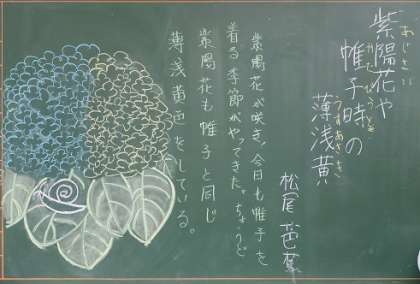 紫陽花や
あじさい
帷子時の
かたびらどき
薄浅黄
うすあさぎ
松尾 芭蕉
紫陽花が咲き、今日も帷子を
着る季節がやってきた。ちょうど
紫陽花も帷子と同じ
薄浅黄色をしている。